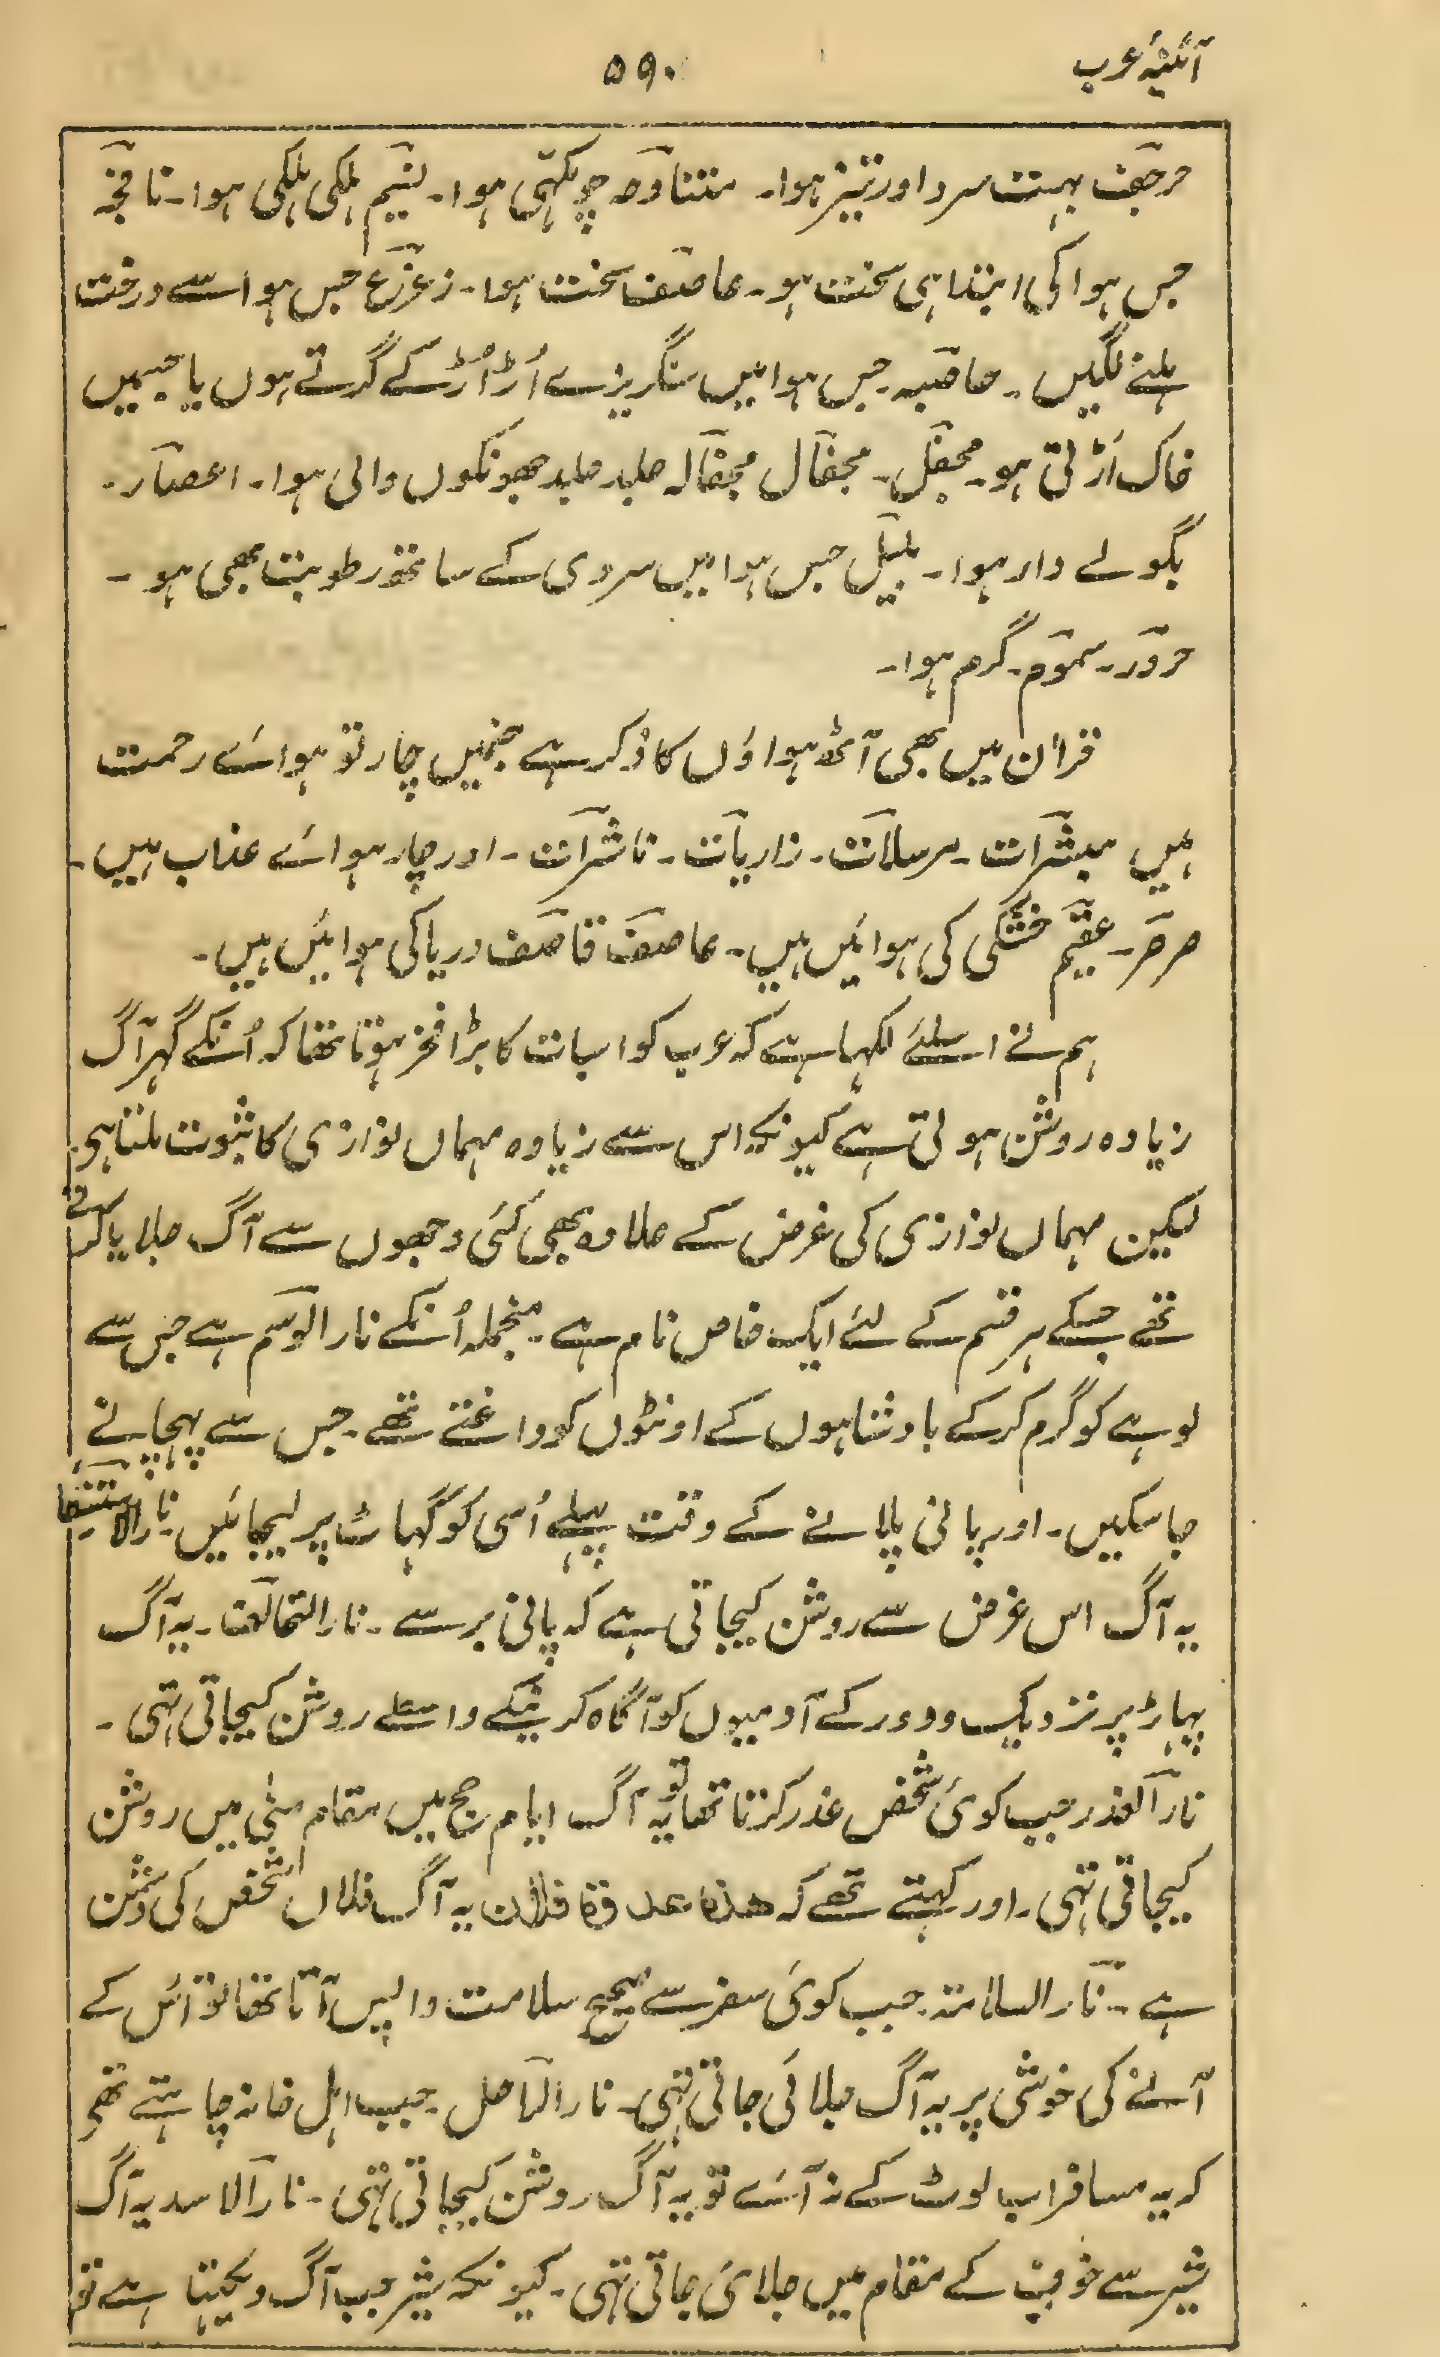 آئینۂ عرب
۵۹۰
حرجف بہت سرد اور تیز ہوا۔ متناوحہ چوبکہی ہوا۔ نسیم ہلکی ہلکی ہوا۔ نافجہ
جس ہوا کی ابتدا ہی سخت ہو۔ عاصف سخت ہوا۔ زعزع جس ہوا سے درخت
ہلنے لگیں۔ حاصبہ جس ہوا میں سنگریزے اُڑ اُڑ کے گرتے ہوں یا جسمیں
خاک اُڑتی ہو۔ مجفل۔ مجفال مجفالہ جلد جلد جھونکوں والی ہوا۔ اعصار۔
بگولے دار ہوا۔ بلیل جس ہوا میں سردی کے ساتھ رطوبت بھی ہو۔
حرور۔ سموم۔ گرم ہوا۔
قرآن میں بھی آٹھ ہواؤں کا ذکر ہے جنمیں چار تو ہوائے رحمت
ہیں مبشرات۔ مرسلات۔ زاریات۔ ناشرات۔ اور چار ہوائے عذاب ہیں۔
صرصر۔ عقیم خشکی کی ہوائیں ہیں۔ عاصف قاصف دریا کی ہوائیں ہیں۔
ہم نے اسلئے لکہا ہے کہ عرب کو اسبات کا بڑا فخر ہوتا تھا کہ اُنکے گہر آگ
زیادہ روشن ہوتی ہے کیونکہ اس سے زیادہ مہماں نوازی کا ثبوت ملتا ہو۔
لیکین مہماں نوازی کی غرض کے علاوہ بھی کئی وجھوں سے آگ جلایا کرتے
تھے جسکے ہر قسم کے لئے ایک خاص نام ہے۔ منجملہ اُنکے نار الوسم ہے جس سے
لوہے کو گرم کر کے بادشاہوں کے اونٹوں کو داغتے تھے۔ جس سے پہچانے
جا سکیں۔ اور پانی پلانے کے وقت پہلے اُسی کو گہاٹ پر لیجائیں۔ نار الاستسقا
یہ آگ اس غرض سے روشن کیجاتی ہے کہ پانی برسے۔ نار التحالف۔ یہ آگ
پہاڑ پر نزدیک و دور کے آدمیوں کو آگاہ کرنیکے واسطے روشن کیجاتی تہی۔
نار الغدر جب کوئی شخص غدر کرتا تھا تو یہ آگ ایام حج میں مقام منٰی میں روشن
کیجاتی تہی۔ اور کہتے تھے کہ ھذہ غدرۃ فلان یہ آگ فلاں شخص کی دشمن
ہے۔ نار السلامتہ۔ جب کوئی سفر سے صحیح سلامت واپس آتا تھا تو اُس کے
آنے کی خوشی پر یہ آگ جلائی جاتی تہی۔ نار الماحل۔ جب اہل خانہ چاہتے تھے
کہ یہ مسافر اب لوٹ کے نہ آئے تو یہ آگ روشن کیجاتی تہی۔ نار الاسد یہ آگ
شیر سے خوف کے مقام میں جلائی جاتی تہی۔ کیونکہ شیر جب آگ دیکہتا ہے تو